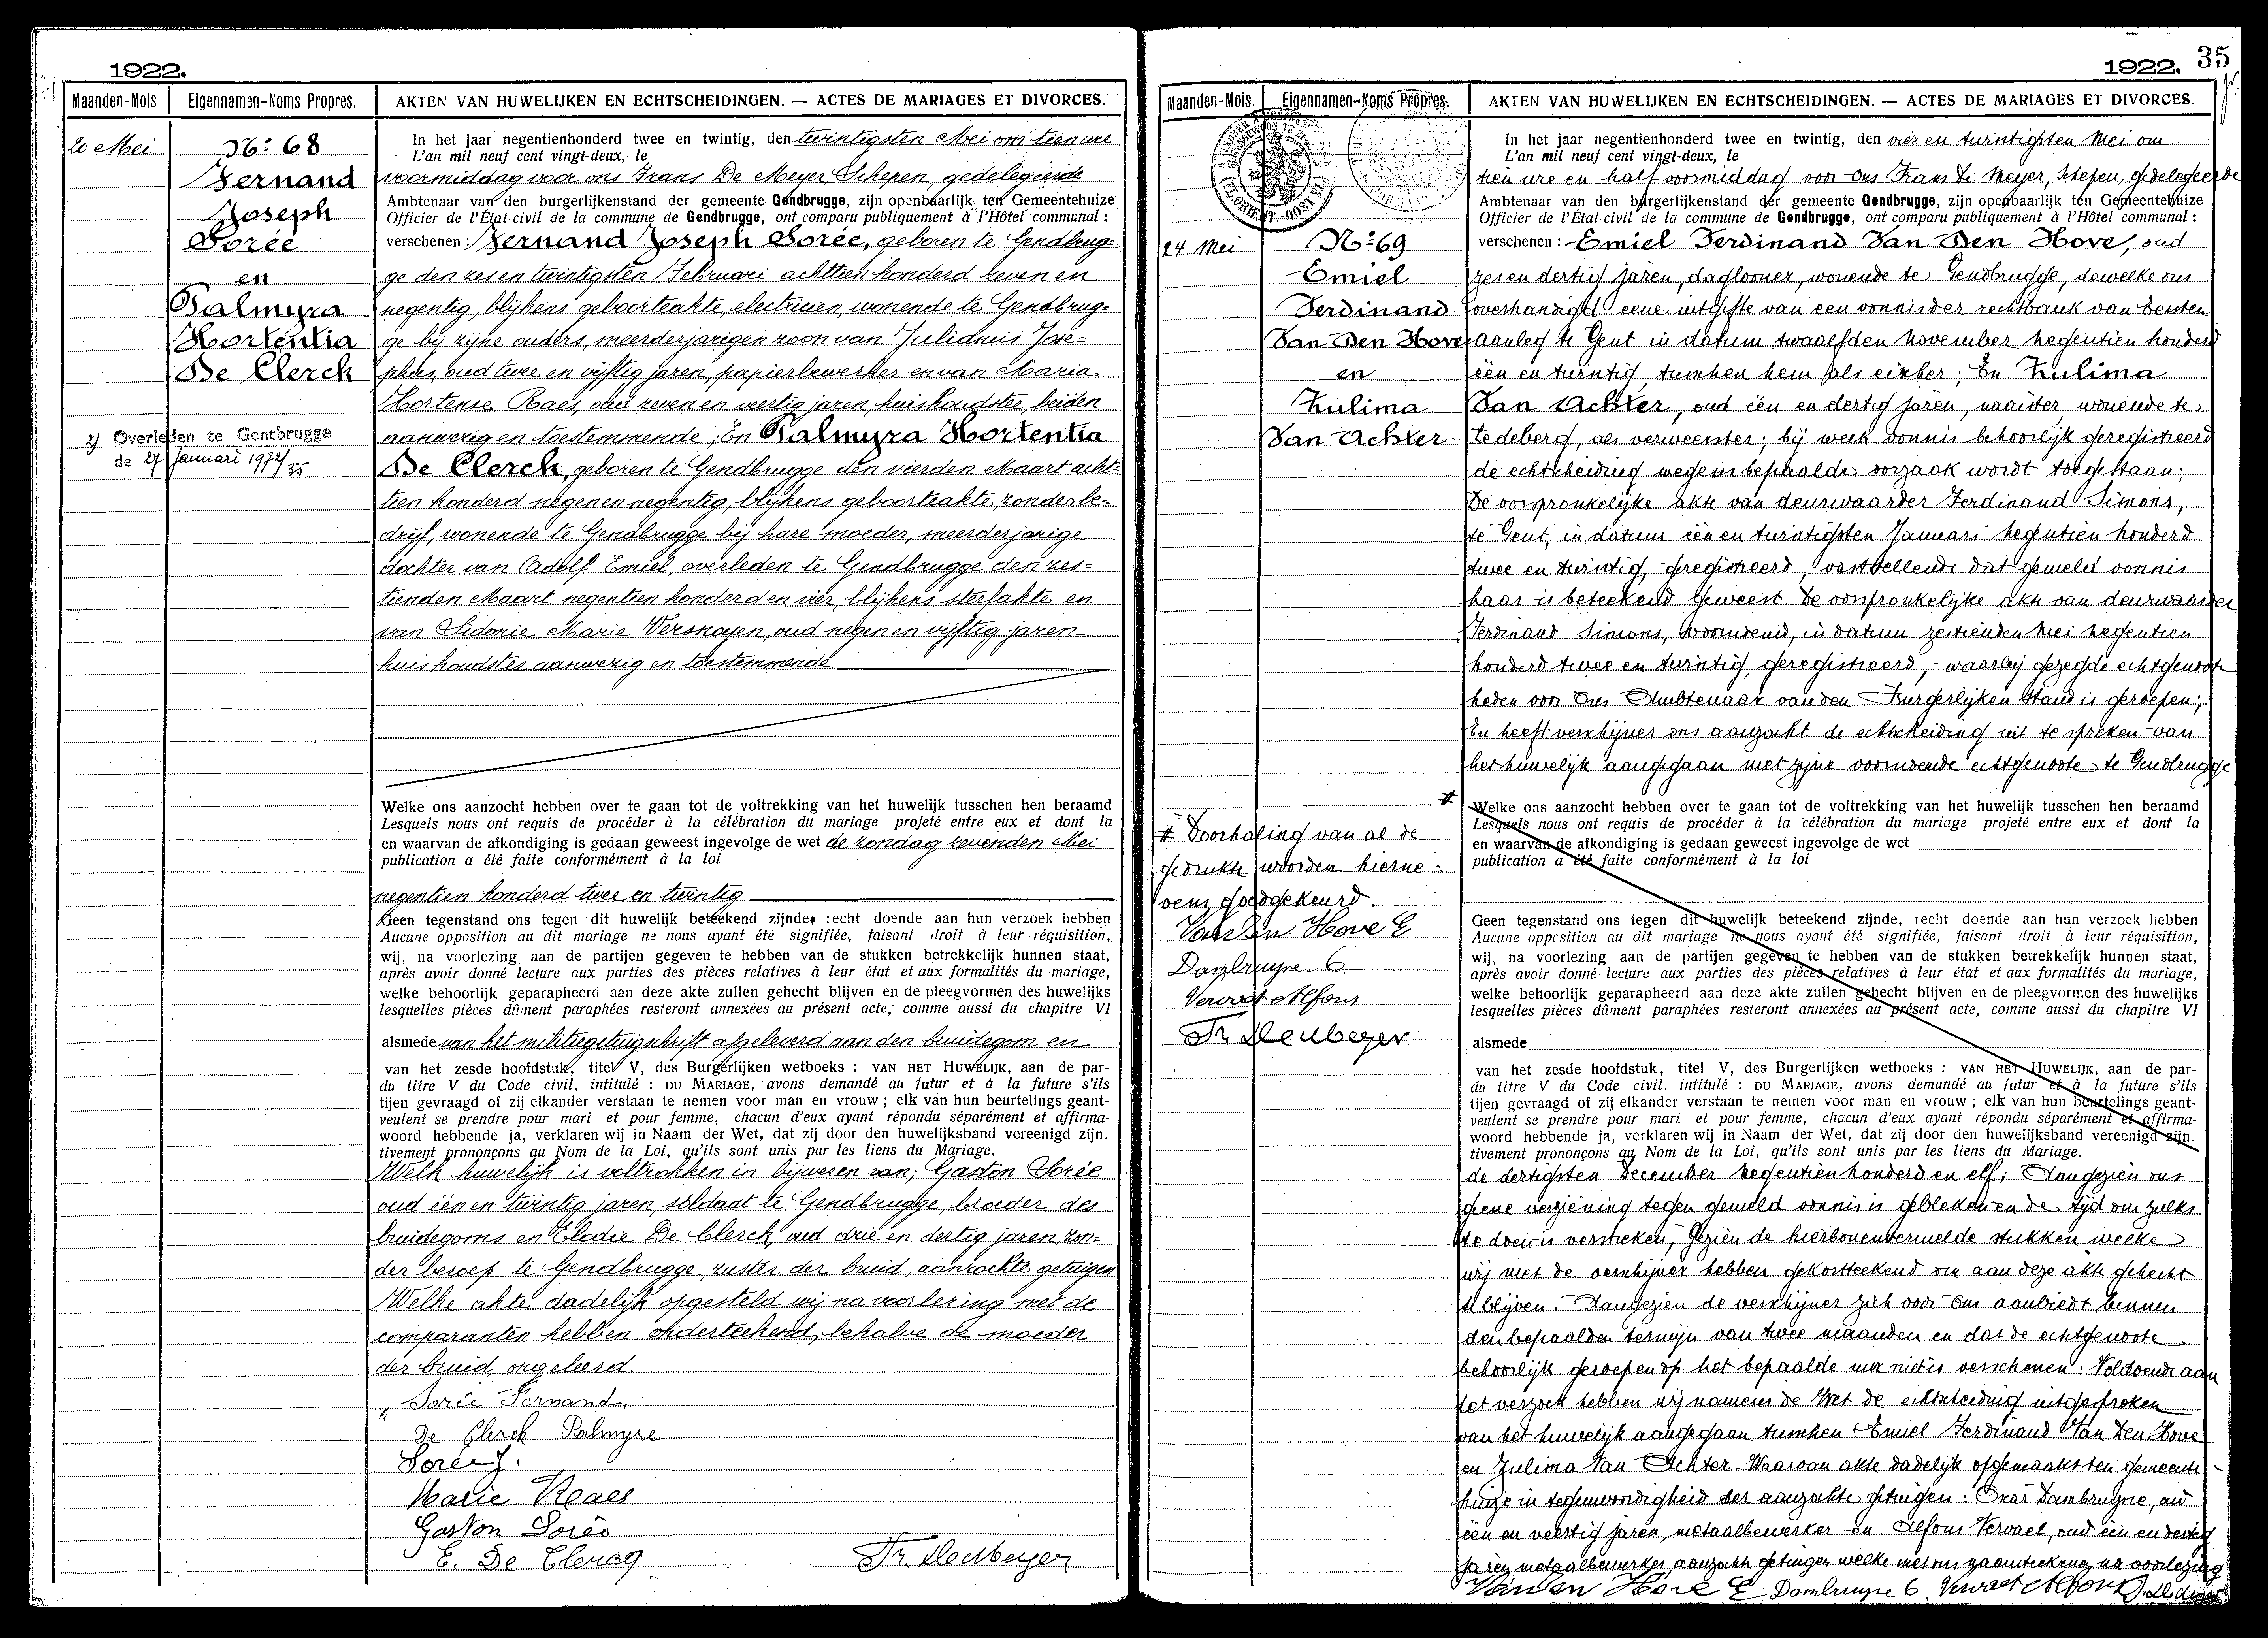 1922.
Maanden-Mois
Eigennamen-Noms Propres.
AKTEN VAN HUWELIJKEN EN ECHTSCHEIDINGEN. — ACTES DE MARIAGES ET DIVORCES.
20 Mei
No: 68
Fernand
Joseph
Sorée
en
Palmyra
Hortentia
De Clerck
2) Overleden te Gentbrugge
de 27 Januari 1972/35
In het jaar negentienhonderd twee en twintig, den twintigsten Mei om tien ure
L'an mil neuf cent vingt-deux, le
voormiddag voor ons Frans De Meyer, Schepen, gedelegeerde
Ambtenaar van den burgerlijkenstand der gemeente Gendbrugge, zijn openbaarlijk ten Gemeentehuize
Officier de l'État-civil de la commune de Gendbrugge, ont comparu publiquement à l'Hôtel communal :
verschenen : Fernand Joseph Sorée, geboren te Gendbrug=
ge den zes en twintigsten Februari achttien honderd zeven en
negentig, blijkens geboorteakte, electricien, wonende te Gendbrug=
ge bij zijne ouders, meerderjarigen zoon van Julianus Jose=
phus, oud twee en vijftig jaren, papierbewerker en van Maria
Hortense Raes, oud zeven en veertig jaren, huishoudster, beiden
aanwezig en toestemmende ; En Palmyra Hortentia
De Clerck, geboren te Gendbrugge den vierden Maart acht=
tien honderd negen en negentig, blijkens geboorteakte, zonder be=
drijf, wonende te Gendbrugge bij hare moeder, meerderjarige
dochter van Adolf Emiel, overleden te Gendbrugge den zes=
tienden Maart negentien honderd en vier, blijkens sterfakte en
van Sidonie Marie Versnayen, oud negen en vijftig jaren
huishoudster aanwezig en toestemmende
Welke ons aanzocht hebben over te gaan tot de voltrekking van het huwelijk tusschen hen beraamd
Lesquels nous ont requis de procéder à la célébration du mariage projeté entre eux et dont la
en waarvan de afkondiging is gedaan geweest ingevolge de wet de zondag zevenden Mei
publication a été faite conformément à la loi
negentien honderd twee en twintig
Geen tegenstand ons tegen dit huwelijk beteekend zijnde, recht doende aan hun verzoek hebben
Aucune opposition au dit mariage ne nous ayant été signifiée, faisant droit à leur réquisition,
wij, na voorlezing aan de partijen gegeven te hebben van de stukken betrekkelijk hunnen staat,
après avoir donné lecture aux parties des pièces relatives à leur état et aux formalités du mariage,
welke behoorlijk geparapheerd aan deze akte zullen gehecht blijven en de pleegvormen des huwelijks
lesquelles pièces dûment paraphées resteront annexées au présent acte, comme aussi du chapitre VI
alsmede van het militiegetuigschrift afgeleverd aan den bruidegom en
van het zesde hoofdstuk, titel V, des Burgerlijken wetboeks : VAN HET HUWELIJK, aan de par-
du titre V du Code civil, intitulé : DU MARIAGE, avons demandé au futur et à la future s'ils
tijen gevraagd of zij elkander verstaan te nemen voor man en vrouw ; elk van hun beurtelings geant-
veulent se prendre pour mari et pour femme, chacun d'eux ayant répondu séparément et affirma-
woord hebbende ja, verklaren wij in Naam der Wet, dat zij door den huwelijksband vereenigd zijn.
tivement prononçons au Nom de la Loi, qu'ils sont unis par les liens du Mariage.
Welk huwelijk is voltrokken in bijwezen van; Gaston Sorée
oud één en twintig jaren, soldaat te Gendbrugge, broeder des
bruidegoms en Elodie De Clerck oud drie en dertig jaren, zon=
der beroep te Gendbrugge, zuster der bruid, aanzochte getuigen
Welke akte dadelijk opgesteld wij na voorlezing met de
comparanten hebben onderteekend, behalve de moeder
der bruid, ongeleerd.
Sorée Fernand.
De Clerck Palmyre
Sorée J.
Marie Raes
Gaston Sorée
E. De Clercq
Fr. De Meyer
1922. 35
Maanden-Mois.
Eigennamen-Noms Propres.
AKTEN VAN HUWELIJKEN EN ECHTSCHEIDINGEN. — ACTES DE MARIAGES ET DIVORCES.
24 Mei
No: 69
Emiel
Ferdinand
Van Den Hove
en
Zulima
Van Achter
# Doorhaling van al de
gedrukte woorden hierne=
vens goedgekeurd.
Van Den Hove E
Dambruyne O.
Vervaet Alfons
Fr. De Meyer
In het jaar negentienhonderd twee en twintig, den vier en twintigsten Mei om
L'an mil neuf cent vingt-deux, le
tien ure en half voormiddag voor ons Frans De Meyer, Schepen, gedelegeerde
Ambtenaar van den burgerlijkenstand der gemeente Gendbrugge, zijn openbaarlijk ten Gemeentehuize
Officier de l'État-civil de la commune de Gendbrugge, ont comparu publiquement à l'Hôtel communal :
verschenen : Emiel Ferdinand Van Den Hove, oud
zes en dertig jaren, daglooner, wonende te Gendbrugge, dewelke ons
overhandigt eene uitgifte van een vonnis der rechtbank van Eersten
aanleg te Gent in datum twaalfden November negentien honderd
één en twintig tusschen hem als eischer ; En Zulima
Van Achter, oud één en dertig jaren, naaister wonende te
Ledeberg, als verweerster ; bij welk vonnis behoorlijk geregistreerd
de echtscheiding wegens bepaalde oorzaak wordt toegestaan ;
De oorspronkelijke akte van deurwaarder Ferdinand Simons,
te Gent, in datum één en twintigsten Januari negentien honderd
twee en twintig, geregistreerd, vaststellende dat gemeld vonnis
haar is beteekend geweest. De oorspronkelijke akte van deurwaarder
Ferdinand Simons, voornoemd, in datum zestienden Mei negentien
honderd twee en twintig, geregistreerd, waarbij gezegde echtgenoote
heden voor Ons Ambtenaar van den Burgerlijken Stand is geroepen ;
En heeft verschijner ons aanzocht de echtscheiding uit te spreken van
het huwelijk aangegaan met zijne voornoemde echtgenoote te Gendbrugge
#
Welke ons aanzocht hebben over te gaan tot de voltrekking van het huwelijk tusschen hen beraamd
Lesquels nous ont requis de procéder à la célébration du mariage projeté entre eux et dont la
en waarvan de afkondiging is gedaan geweest ingevolge de wet
publication a été faite conformément à la loi
Geen tegenstand ons tegen dit huwelijk beteekend zijnde, recht doende aan hun verzoek hebben
Aucune opposition au dit mariage ne nous ayant été signifiée, faisant droit à leur réquisition,
wij, na voorlezing aan de partijen gegeven te hebben van de stukken betrekkelijk hunnen staat,
après avoir donné lecture aux parties des pièces relatives à leur état et aux formalités du mariage,
welke behoorlijk geparapheerd aan deze akte zullen gehecht blijven en de pleegvormen des huwelijks
lesquelles pièces dûment paraphées resteront annexées au présent acte, comme aussi du chapitre VI
alsmede
van het zesde hoofdstuk, titel V, des Burgerlijken wetboeks : VAN HET HUWELIJK, aan de par-
du titre V du Code civil, intitulé : DU MARIAGE, avons demandé au futur et à la future s'ils
tijen gevraagd of zij elkander verstaan te nemen voor man en vrouw ; elk van hun beurtelings geant-
veulent se prendre pour mari et pour femme, chacun d'eux ayant répondu séparément et affirma-
woord hebbende ja, verklaren wij in Naam der Wet, dat zij door den huwelijksband vereenigd zijn.
tivement prononçons au Nom de la Loi, qu'ils sont unis par les liens du Mariage.
de dertigsten December negentien honderd en elf ; Aangezien ons
geene verziening tegen gemeld vonnis is gebleken en de tijd om zulks
te doen is verstreken, Gezien de hierbovenvermelde stukken welke
wij met de verschijner hebben gekortteekend om aan deze akte gehecht
te blijven. Aangezien de verschijner zich voor Ons aanbiedt binnen
den bepaalden termijn van twee maanden en dat de echtgenoote
behoorlijk geroepen op het bepaalde uur niet is verschenen. Voldoende aan
het verzoek hebben wij namens de Wet de echtscheiding uitgesproken
van het huwelijk aangegaan tusschen Emiel Ferdinand Van Den Hove
en Zulima Van Achter. Waarvan akte dadelijk opgemaakt ten gemeente-
huize in tegenwoordigheid der aanzochte getuigen : Omer Dambruyne, oud
één en veertig jaren, metaalbewerker en Alfons Vervaet, oud één en dertig
jaren metaalbewerker, aanzochte getuigen welke met ons naamteekenen na voorlezing
Van Den Hove E. Dambruyne O. Vervaet Alfons Fr. De Meyer